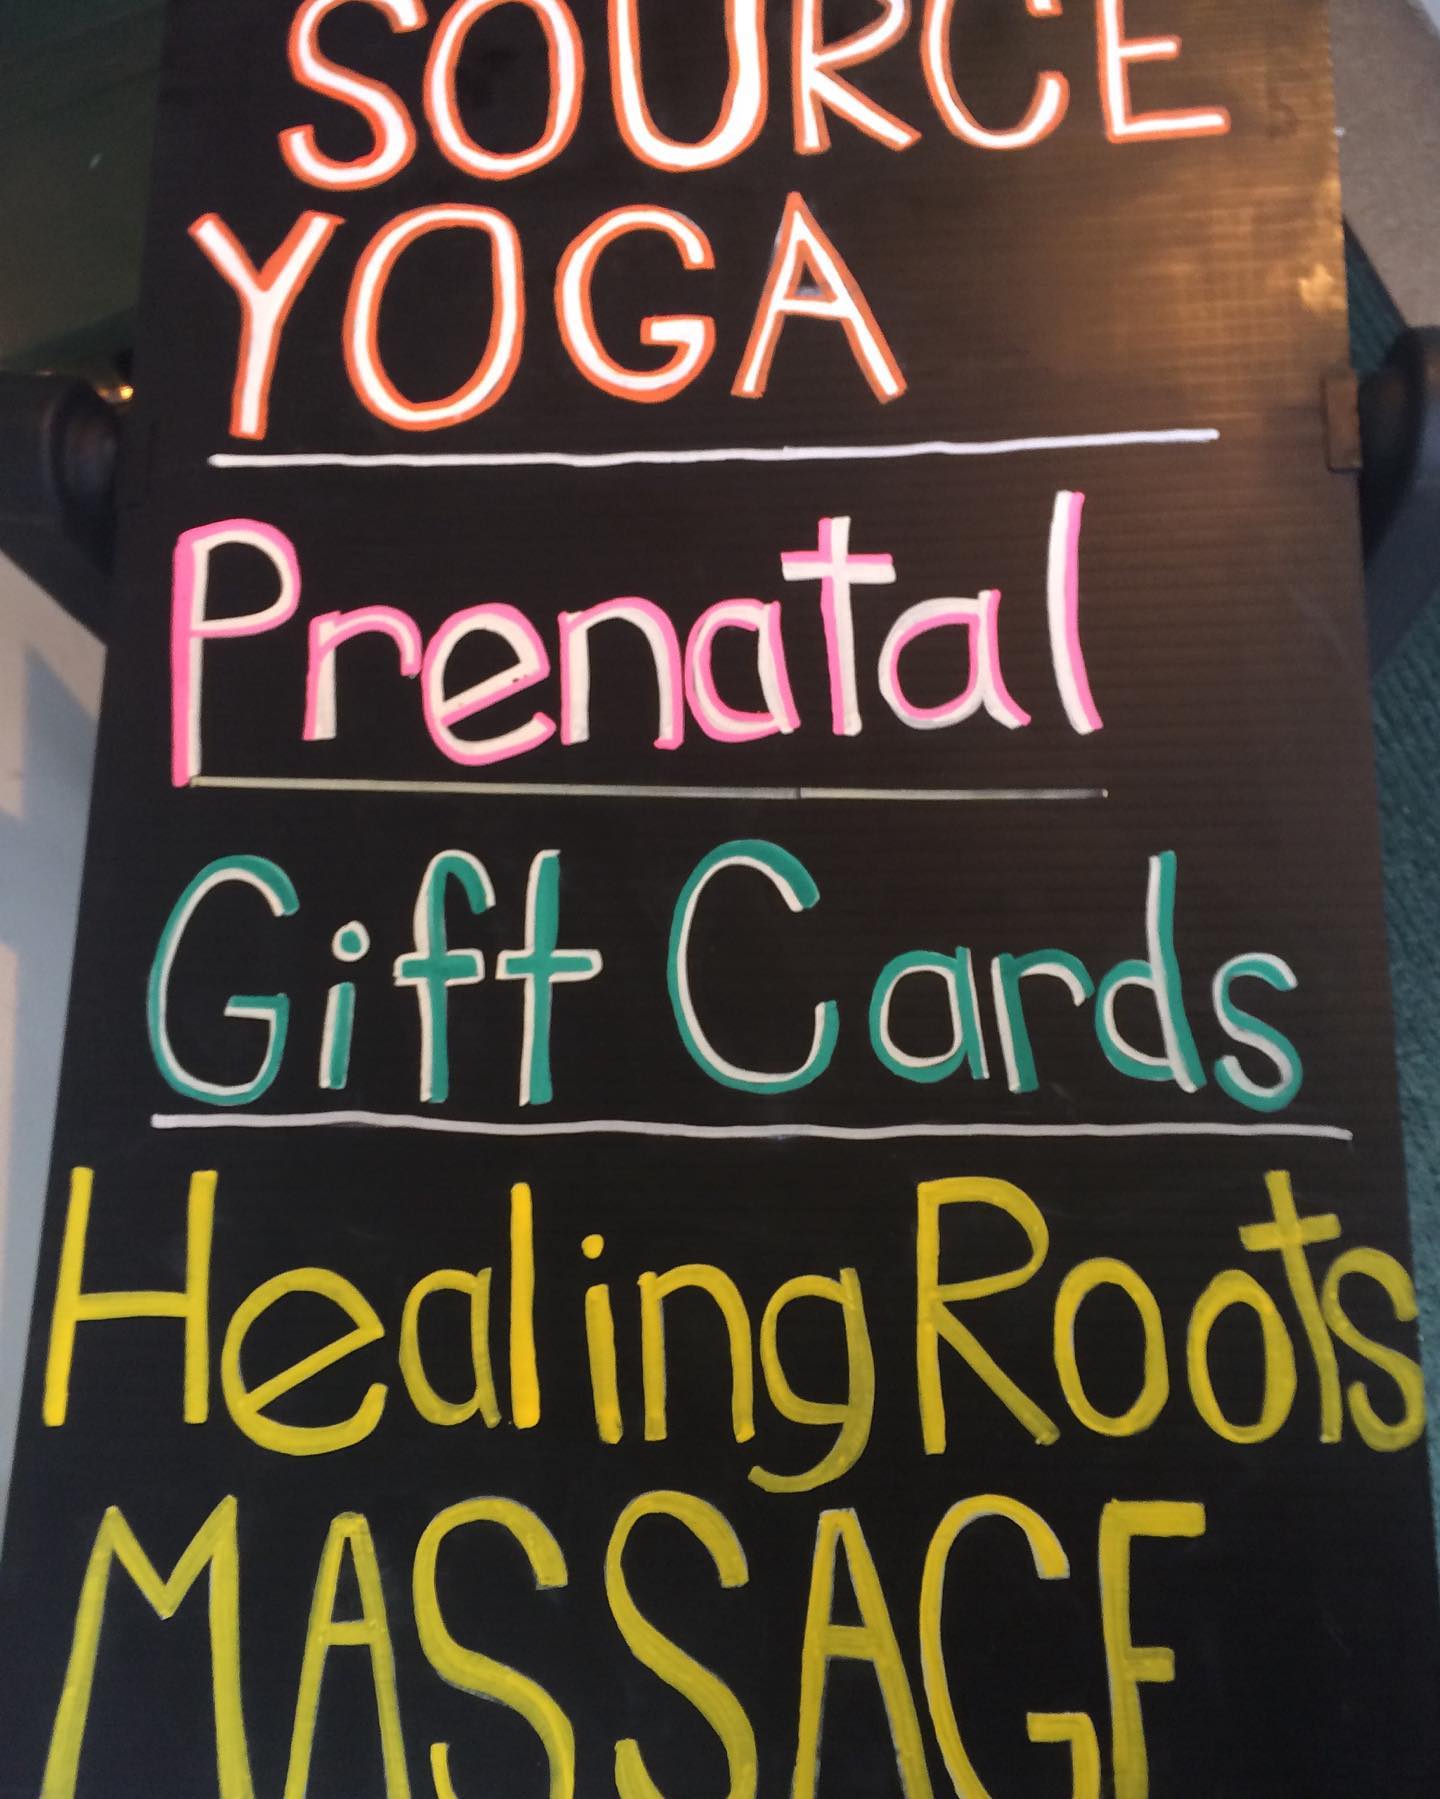 SOURCE
YOGA
Prenatal
Gift Cards
Healing Roots
MASSAGE